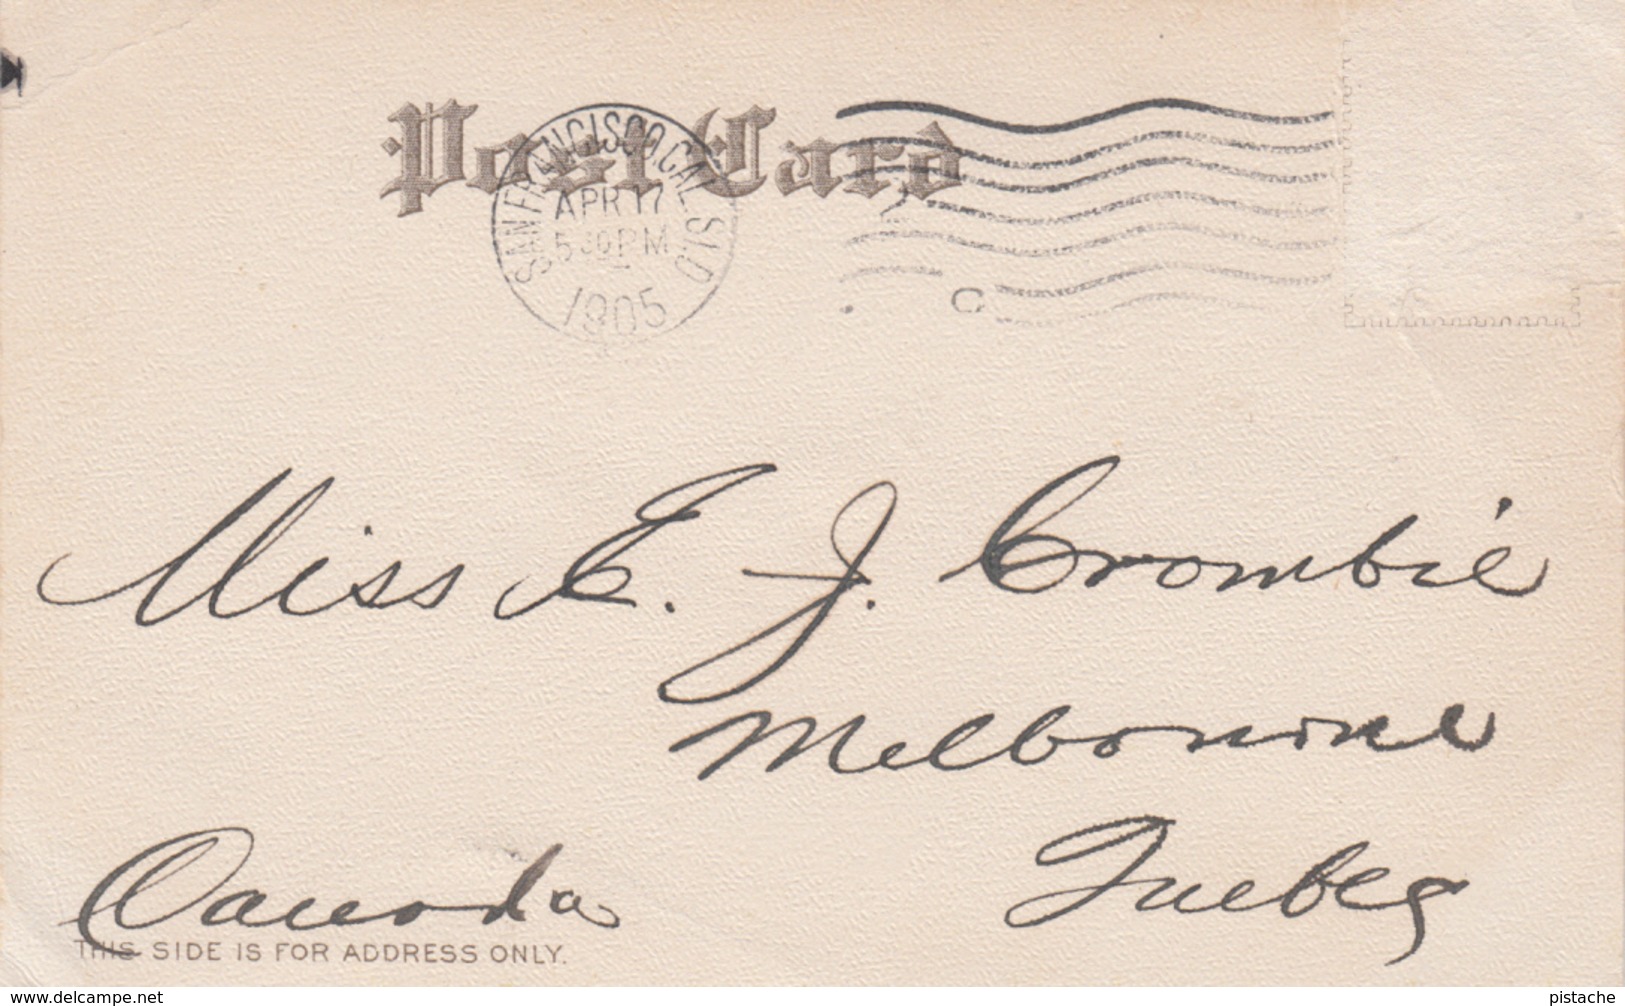 Post Card
SAN FRANCISCO, CAL. STA. D
APR 17
5 30 PM
1905
C
Miss E. J. Crombie
Melbourne
Quebec
Canada
THIS SIDE IS FOR ADDRESS ONLY.
www.delcampe.net
pistache